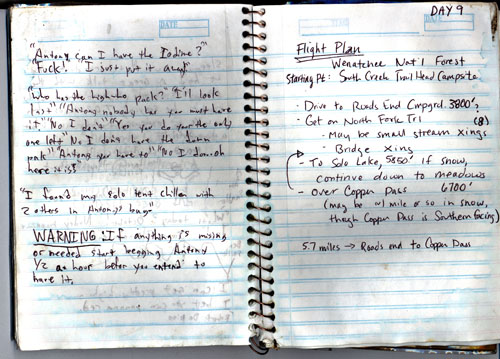 "Antony can I have the Iodine?"
"Fuck! I just put it away"
"Who has the high-who pack?" "I'll look
last" "Antony nobody has you must have
it," "No I don't" "Yes you do your the only
one left" No I don't have the damn
pak" "Antony you have to" "No I don...oh
here it is"
"I found my solo tent chillen with
2 others in Antonys bag"
WARNING: If anything is missing
or needed start begging Antony
1/2 an hour befor you entend to
have it.
DATE
DAY 9
DATE
Flight Plan
Wenatchee Nat'l Forest
Starting Pt: South Creek Trail Head Campsite
- Drive to Roads End Cmpgrd. 3800'
- Get on North Fork Trl (8)
- May be small stream Xings
- Bridge Xing
- To Solo Lake, 5850' if snow,
continue down to meadows
- Over Copper Pass 6700'
(may be ~1 mile or so in snow,
though Copper Pass is Southern facing)
5.7 miles → Roads end to Copper Pass